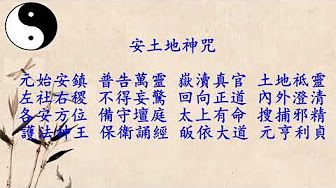 安土地神咒
元始安鎮 普告萬靈 嶽瀆真官 土地袛靈
左社右稷 不得妄驚 回向正道 內外澄清
各安方位 備守壇庭 太上有命 搜捕邪精
護法神王 保衛誦經 皈依大道 元亨利貞